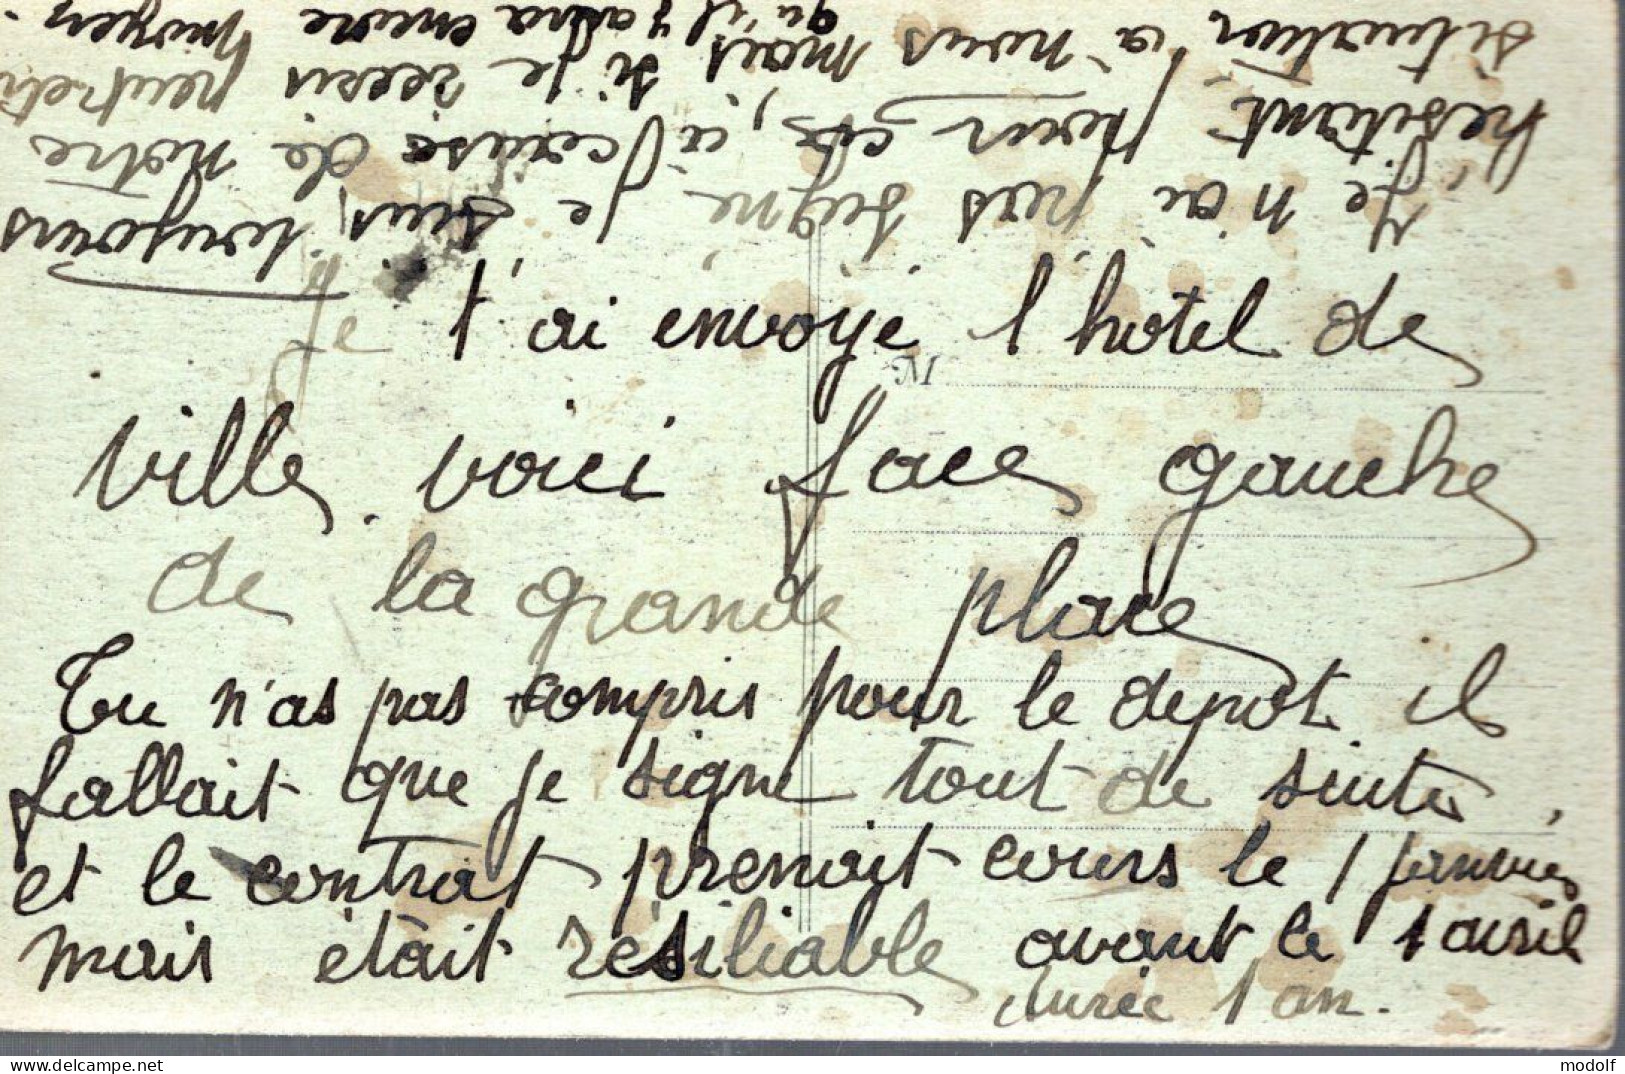 Je t'ai envoyé l'hôtel de
ville voici face gauche
M
de la grande place
Tu n'as pas compris pour le depot il
fallait que je signe tout de suite,
et le contrat prenait cours le 1 janvier
mais était résiliable avant le 1 avril
durée 1 an.
Je n'ai pas signé, je suis toujours
hesitant pour cela, à cause de notre
situation à nous mais si je reçois peut-etre
qu'il y aura encore moyen
modolf